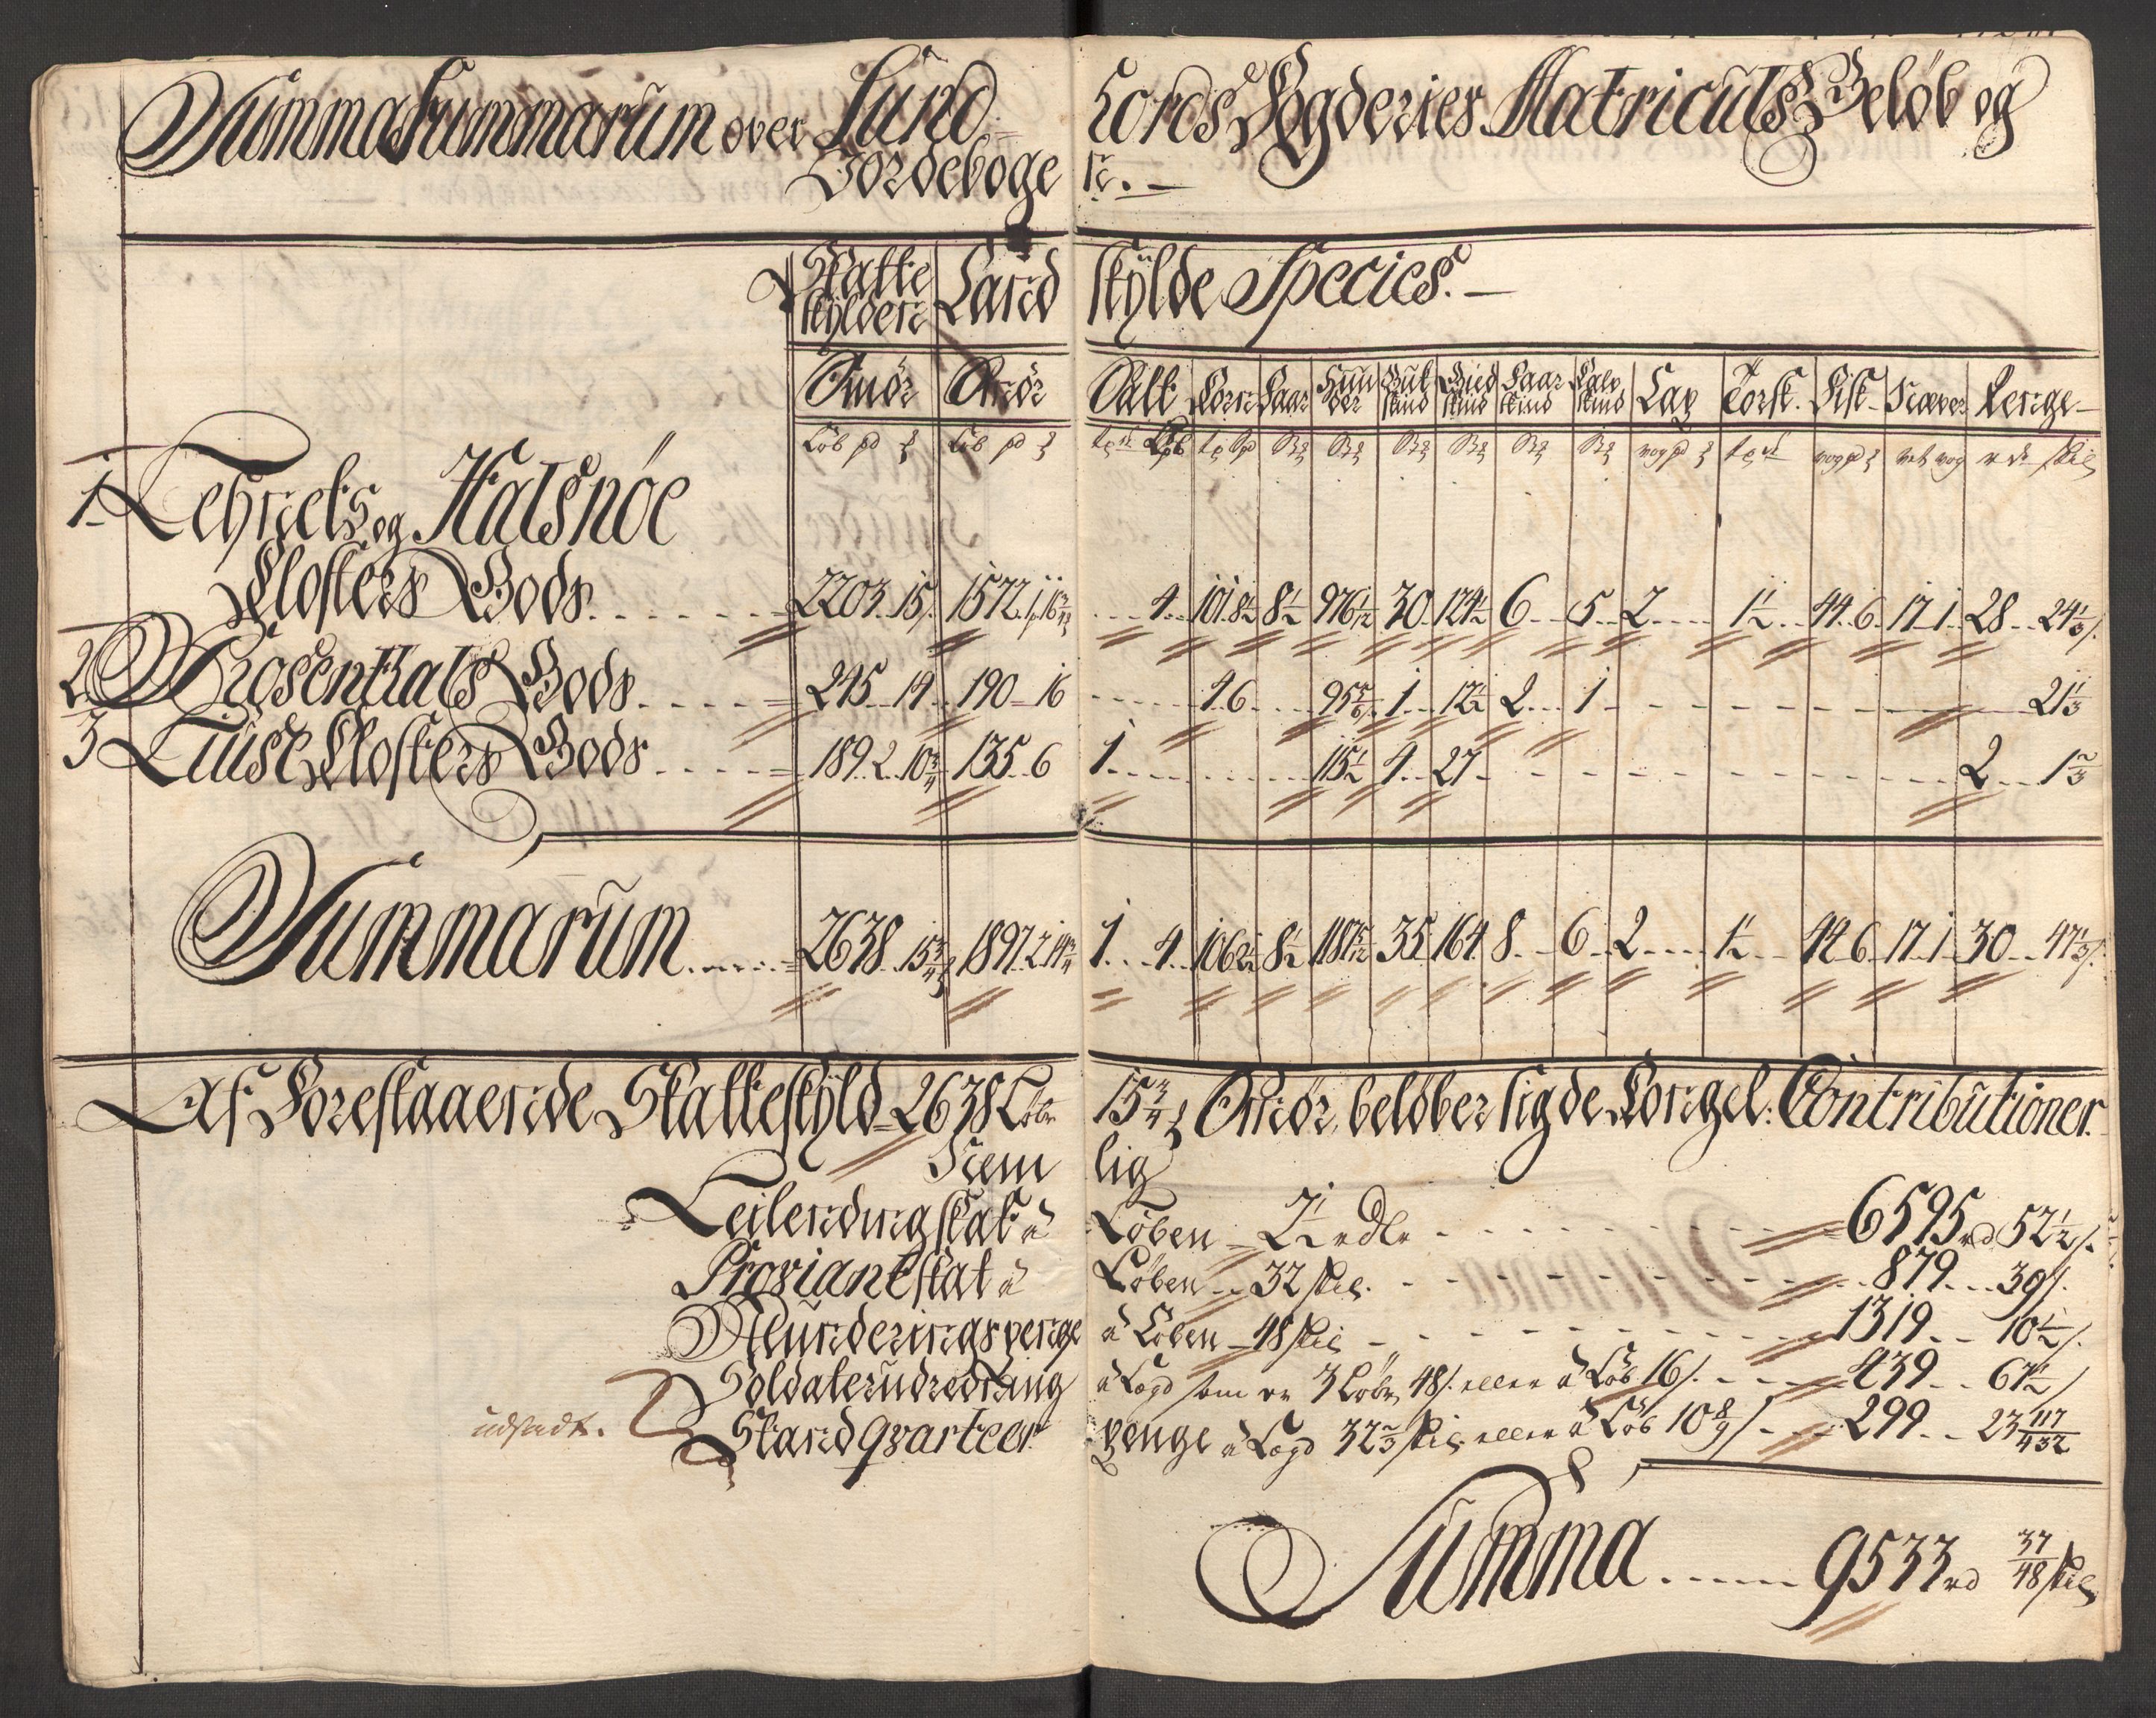 Summa Summarum over Sund Hords Fogderies Matriculs Beløb og
Jordeboge rr.
Skatte Skylden Land skylde Species.
Smør Smør Salt Korn Faar Huuder Buk skind Gied skind Faar skind Kalv skind Lax Torsk. Fisk Næver Penge
Løb pd Løb pd
1. Lehnets og Halsnöe
Closters Gods 2203 . 15 1572 . 1 . 16 3/4 4 101 . 8 1/2 8 1/2 976 1/12 30 124 1/2 6 5 2 1 1/2 44 . 6 17 . 1 28 24 1/3
2 Rosentkals Gods 245 . 14 190 16 4 6 95 5/6 1 12 1/2 2 1 21 1/3
3 Lüüse Closters Gods 189 . 2 . 10 3/4 135 . 6 1 115 1/2 4 27 2 1 2/3
Summarum 2638 . 15 3/4 1897 . 2 . 14 3/4 1 4 106 2 1/2 8 1/2 1187 5/12 35 164 8 6 2 1 1/2 44 6 17 . 1 30 47 1/3
Af Forestaaende Skatteskyld 2638 Løber 15 3/4 Smør, beløber sig de Kongel: Contributioner.
Nemlig
Leilendingskat à Løben 2 1/2 rdlr 6595 rd 52 1/2 s.
Proviantskat à Løben 32 skil. 879 39 s.
Munderingspenge à Løben 48 skil 1319 10 1/2 s.
Soldaterudredning à Lægd som er 3 Løber 48 s. eller à Løb 16 s. 439 67 1/2 s
udstedt. Standqvarteer penge à Lægd 32 2/3 skil eller à Løb 10 8/9 s 299 23 117/432
Summa 9533 rd 37/48 skil